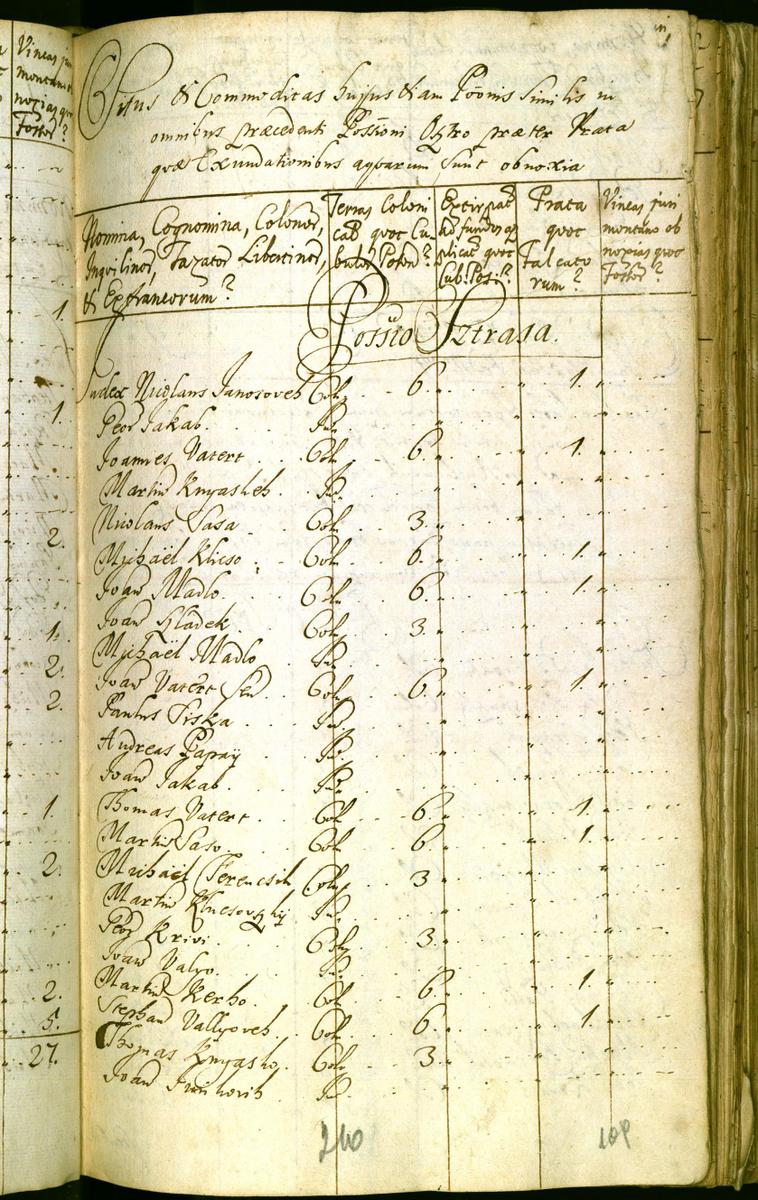 Vineas juri
montano
noxias quot
Fossor?
1.
1.
2.
1.
2.
2.
1.
2.
2.
5.
27.
Situs & Commoditas hujus etiam Põonis similis in
omnibus præcedenti Possioni Osztro præter Prata
quæ Exundationibus aquarum sunt obnoxia
Nomina, Cognomina, Colonor,
Inquilinor, Taxator Libertinor,
& Extraneorum?
Terras Coloni
cał quot Cu
bulor Poson?
Extirpat
ad fundos ap
plicat quot
Cub: Pos:?
Prata
quot
Falcato
rum?
Vineas juri
montano ob
noxias quot
Fossor?
Possio Sztrasa.
Judex Nicolaus Janosoveh Col. 6. 1.
Petr Jakab. In.
Joannes Vatert Col. 6. 1.
Martin Knyasheh. In.
Nicolaus Sasa Col. 3.
Michaël Klicso Col. 6. 1.
Joan Madlo. Col. 6. 1.
Joan Hladek. Col. 3.
Michaël Madlo In.
Joan Vatert Sen Col. 6. 1.
Paulus Siska In.
Andreas Papaÿ In.
Joan Jakab. In.
Thomas Vatert. Col. 6. 1.
Martin Saso. Col. 6. 1.
Michaël Ferencsih Col. 3.
Martin Klucsovszkÿ In.
Petr Krivi. Col. 3.
Joan Valyo. In.
Martin Kerho. Col. 6. 1.
Stephan Vallyoveh. Col. 6. 1.
Thomas Knyasko, Col. 3.
Joan In.
240
109